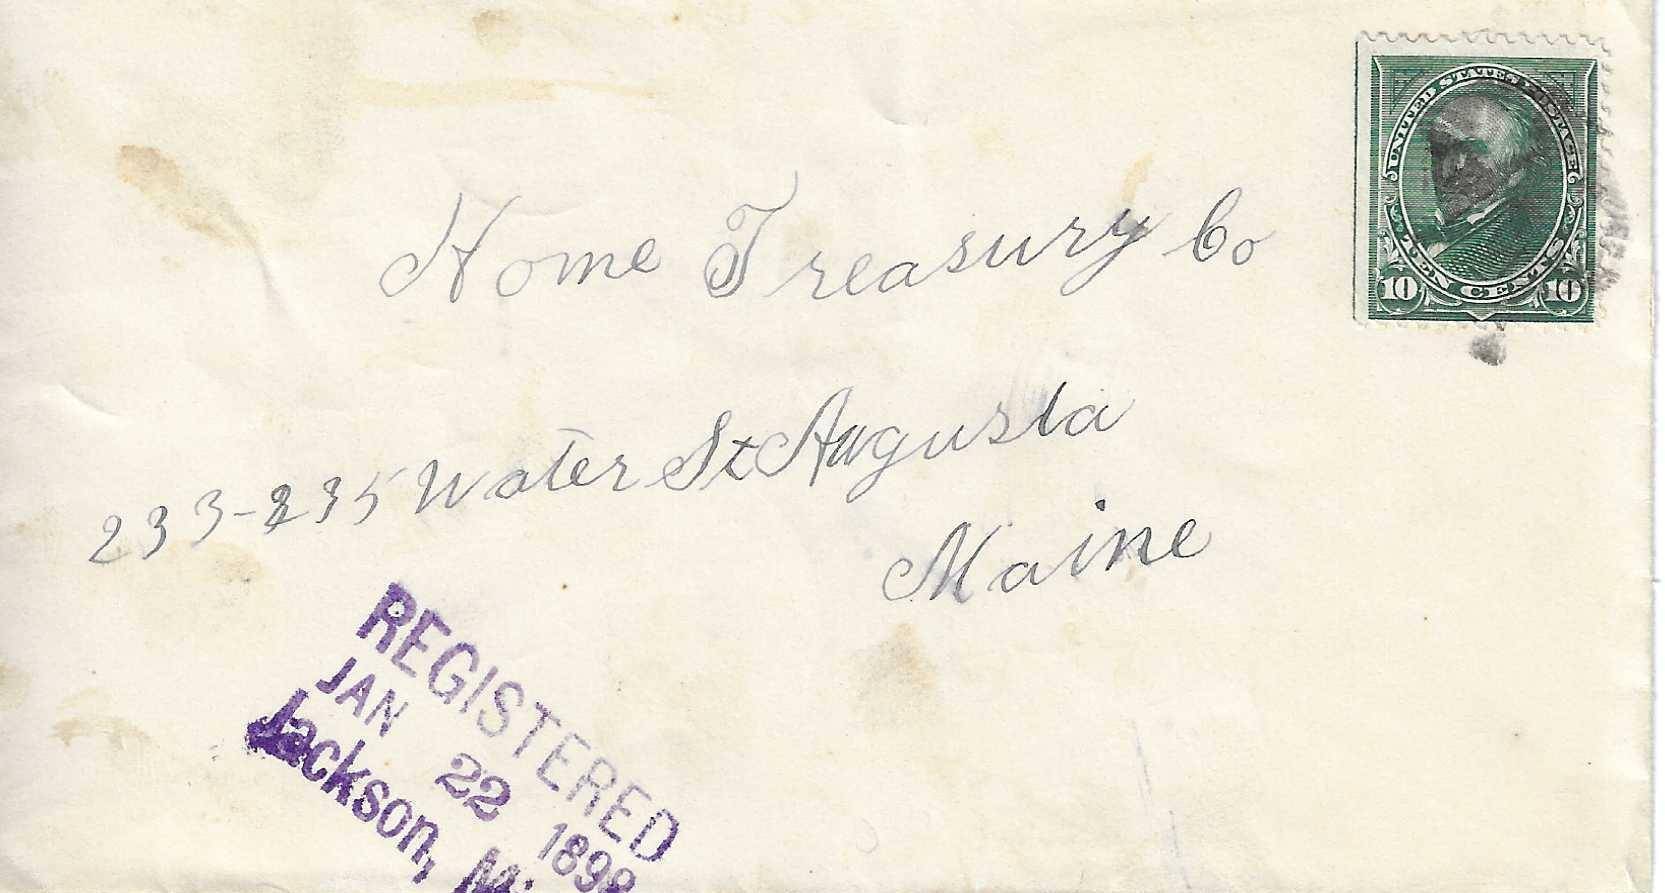 UNITED STATES POSTAGE
10 TEN CENTS 10
Home Treasury Co
233-235 Water St Augusta
Maine
REGISTERED
JAN 22 1898
Jackson,